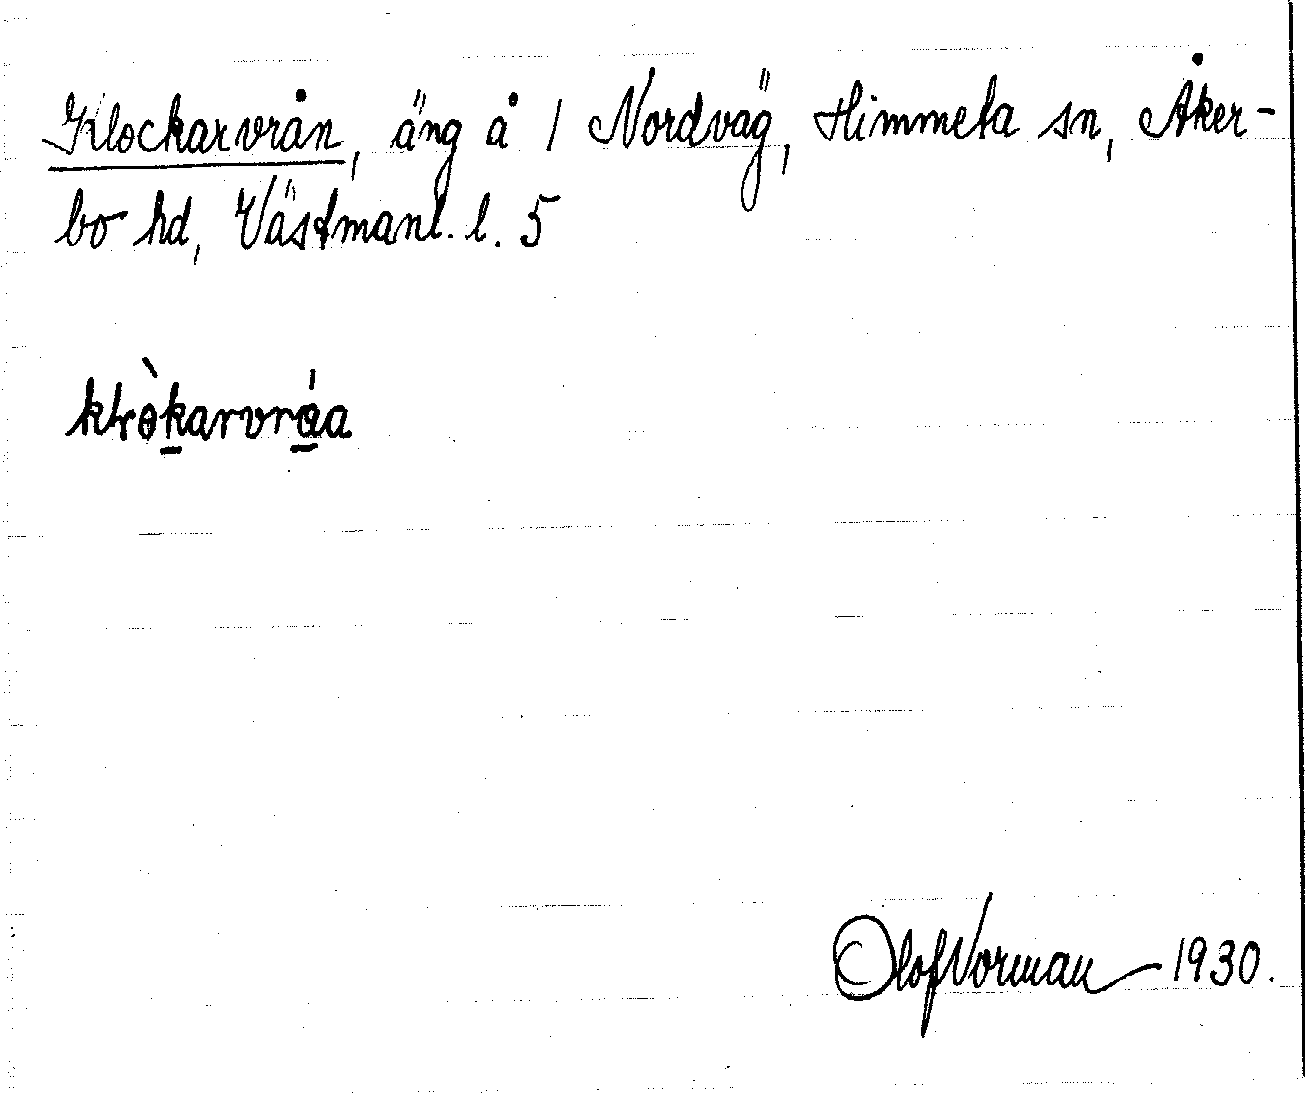 Klockarvrån, äng å 1 Nordväg, Himmeta sn, Åker-
bo hd, Västmanl. l. 5
klòkarvráa
Olof Norman 1930.